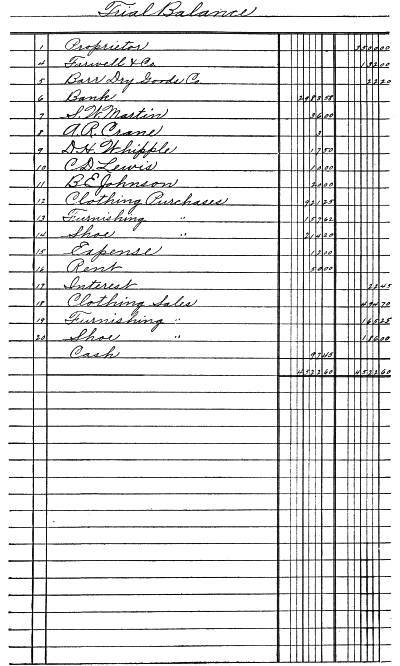 Trial Balance
1 Proprietor 350000
4 Farwell & Co. 13200
5 Barr Dry Goods Co. 2220
6 Bank 298358
7 S.W. Martin 3600
8 A.R. Crane 3
9 D.H. Whipple 1750
10 C.D. Lewis 1000
11 B.E. Johnson 2000
12 Clothing Purchases 92125
13 Furnishing " 15762
14 Shoe " 21420
15 Expense 1200
16 Rent 5000
17 Interest 2245
18 Clothing Sales 49470
19 Furnishing " 16525
20 Shoe " 18600
Cash 9745
452260 452260